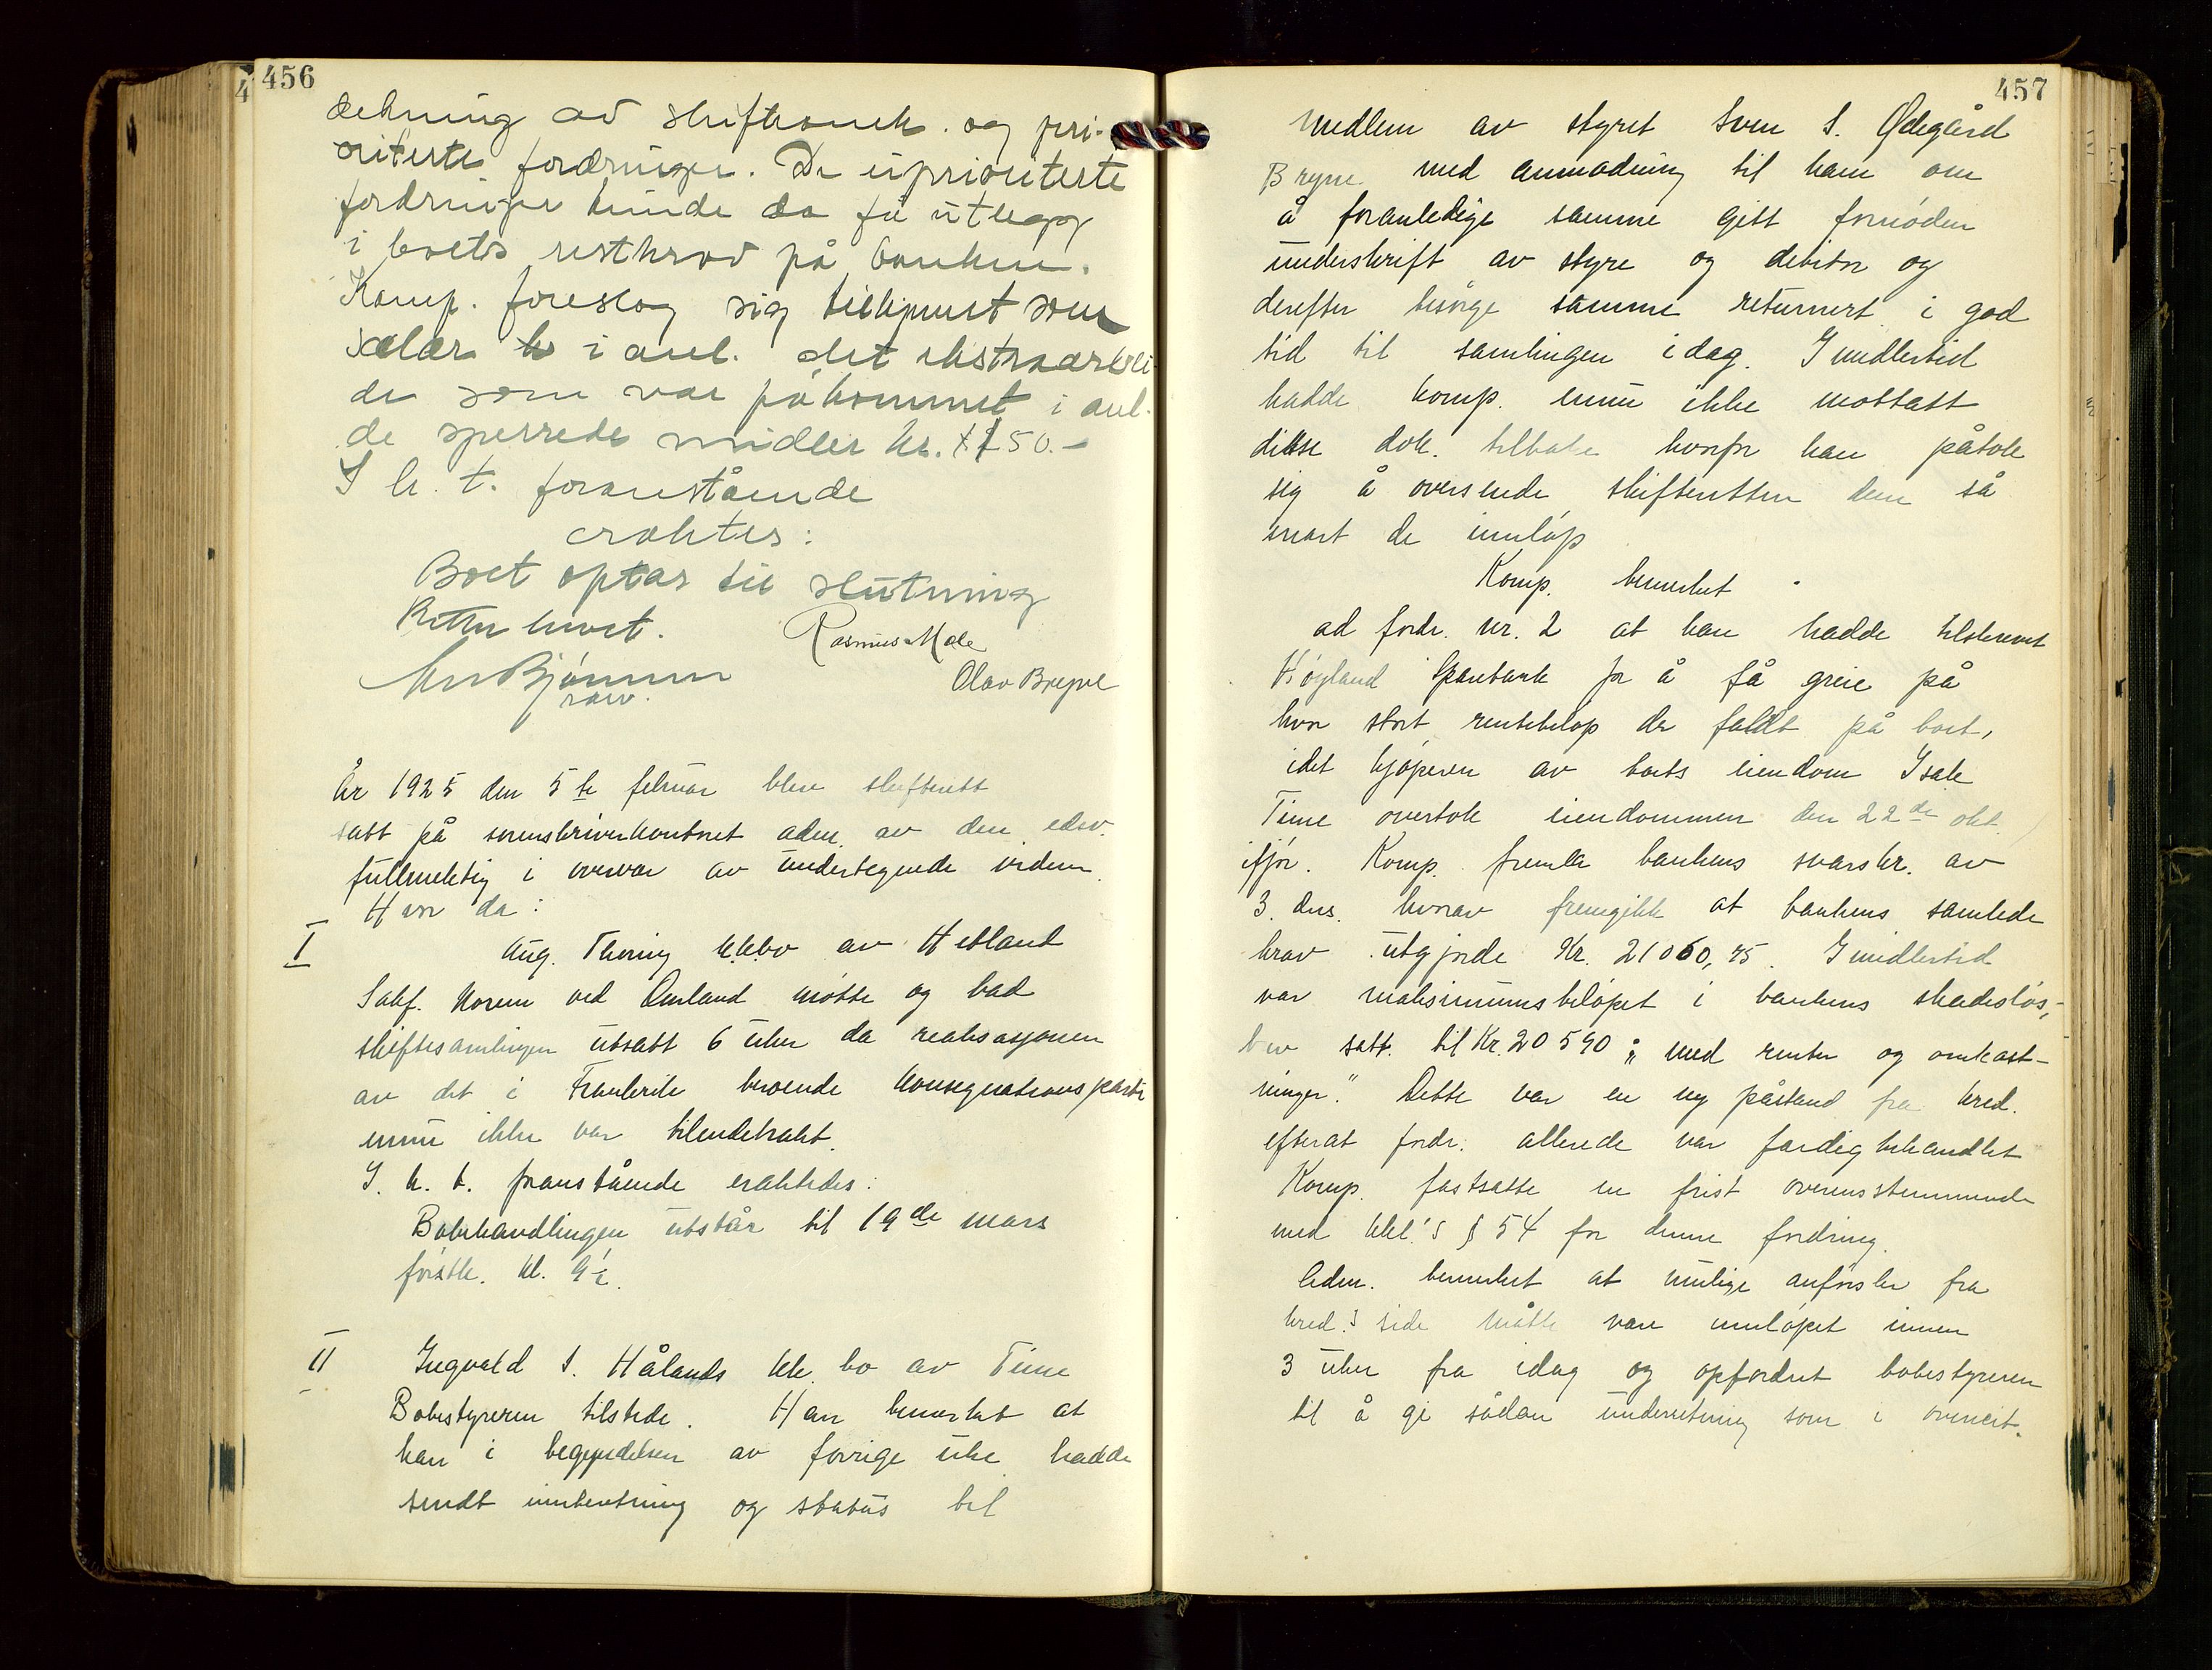 456
dekning av skifteomk. og pri-
oriterte fordringer. De uprioriterte
fordringer kunde da få utlegg
i boets restkrav på banken.
Komp. foreslog sig tilkjennt som
salær kr i anl. det ekstraarbei-
de som var påkommet i anl.
de sperrede midler kr. 150.-
I h. t. foranstående
eraktes:
Boet optas til slutning
Retten hevet.
Rasmus Mæle
Olav Bryne
År 1925 den 5te februar blev skifterett
satt på sorenskriverkontoret adm. av den edsv.
fullmektig i overvær av undertegnede vidner.
Hvor da:
I
Aug. Thoring kkbo av Hetland
Sakf. Norem ved Omland møtte og bad
skiftesamlingen utsatt 6 uker da realisasjonen
av det i Frankrike beroende konsignationsparti
ennu ikke var tilendebrakt.
I. h. t. foranstående eraktedes:
Bobehandlingen utstår til 19de mars
førstk. kl. 9½.
II
Ingvald S. Hålands kk. bo av Time
Bobestyreren tilstede. Han bemerket at
han i begyndelsen av forrige uke hadde
sendt innberetning og status til
457
medlem av styret Sven S. Ødegård
Bryne med anmodning til ham om
å foranledige samme gitt fornøden
underskrift av styre og debitor og
derefter besørge samme returnert i god
tid til samlingen idag. Imidlertid
hadde komp. ennu ikke mottatt
disse dok. tilbake hvorfor han påtok
sig å oversende skifteretten dem så
snart de innløp
Komp. bemerket
ad fordr. nr. 2 at han hadde tilskrevet
Høyland Sparebank for å få greie på
hvor stort rentebeløp der faldt på boet,
idet kjøperen av boets eiendom Isak
Time overtok eiendommen den 22de okt.
ifjor. Komp. fremla bankens svarskr. av
3. ds. hvorav fremgikk at bankens samlede
krav utgjorde Kr. 21060,45. Imidlertid
var maksimumsbeløpet i bankens skadesløs-
brev satt til Kr. 20590 „med renter og omkost-
ninger.” Dette var en ny påstand fra kred.
efterat fordr. allerede var færdigbehandlet
Komp. fastsatte en frist overensstemmende
med kkl.'s § 54 for denne fordring.
Adm. bemerket at mulige anførsler fra
kred.s side måtte være innløpet innen
3 uker fra idag og opfordret bobestyreren
til å gi sådan underretning som i